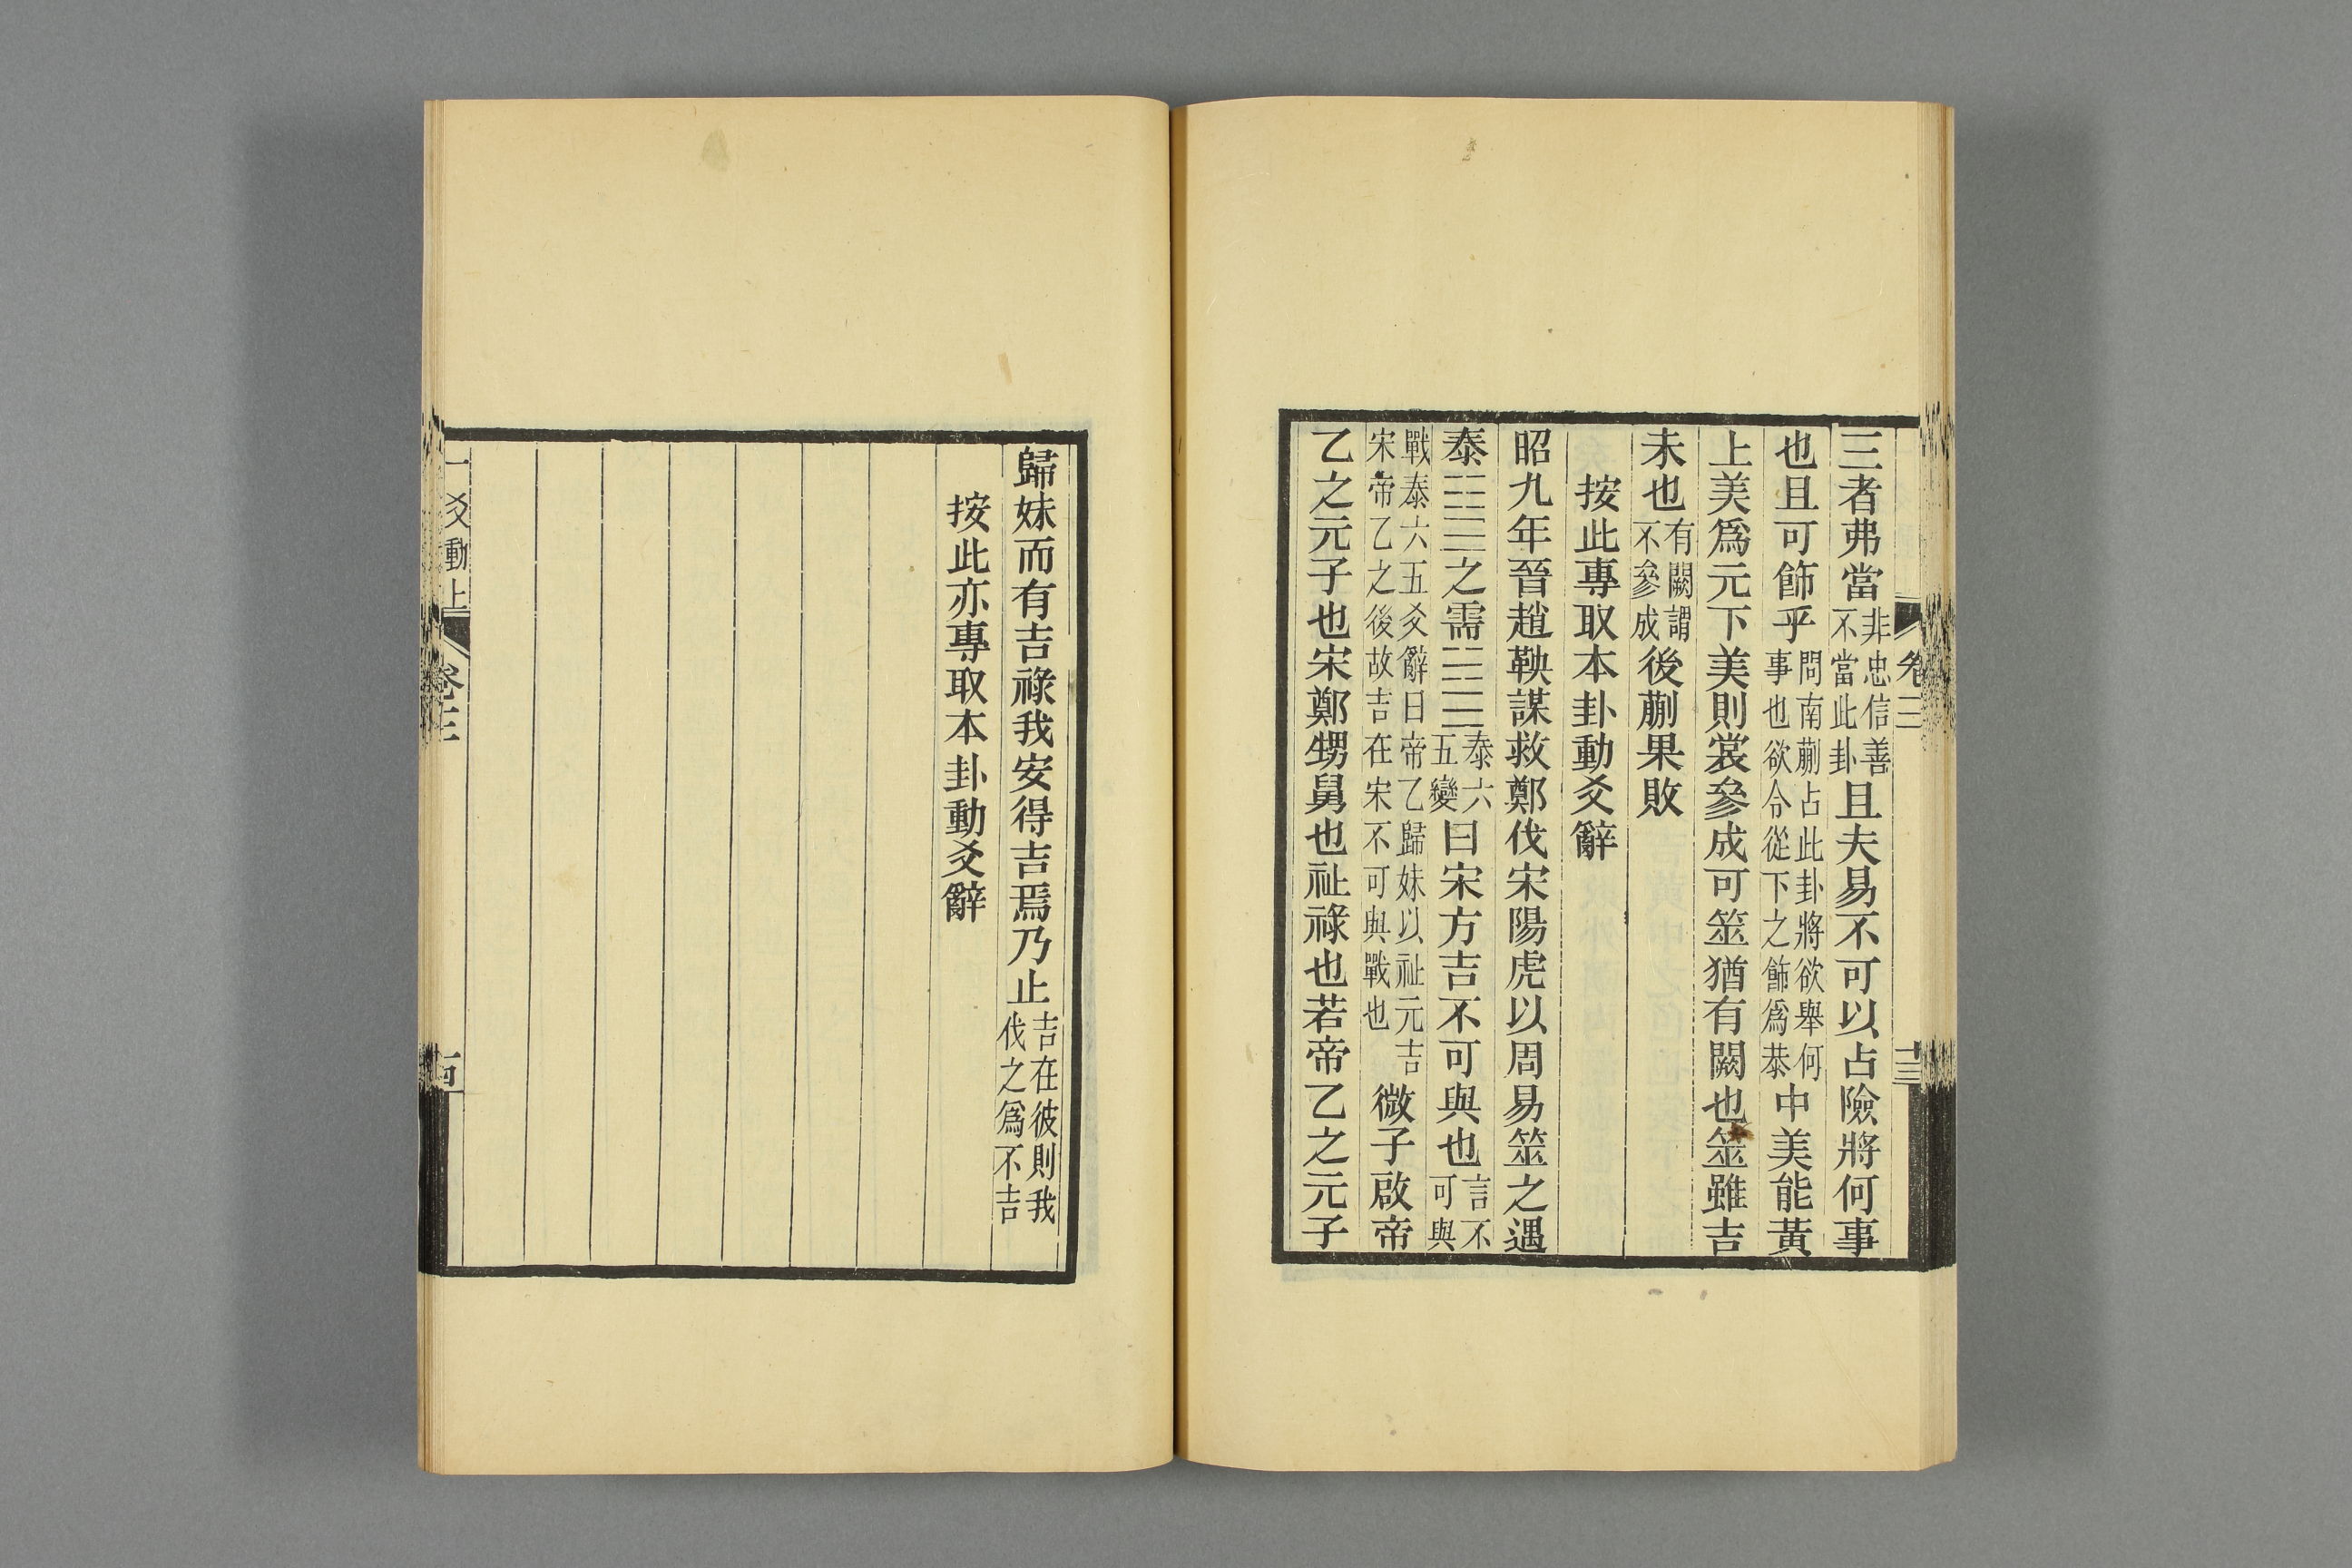 卷三
十三
三者弗當非忠信善不當此卦且夫易不可以占險將何事
也且可飾乎問南蒯占此卦將欲舉何事也欲令從下之飾爲恭中美能黃
上美爲元下美則裳參成可筮猶有闕也筮雖吉
未也有闕謂不參成後蒯果敗
按此專取本卦動爻辭
昭九年晉趙鞅謀救鄭伐宋陽虎以周易筮之遇
泰䷊之需䷄泰六五變曰宋方吉不可與也言不可與
戰泰六五爻辭曰帝乙歸妹以祉元吉宋帝乙之後故吉在宋不可與戰也微子啟帝
乙之元子也宋鄭甥舅也祉祿也若帝乙之元子
歸妹而有吉祿我安得吉焉乃止吉在彼則我伐之爲不吉
按此亦專取本卦動爻辭
一爻動上
卷三
十四